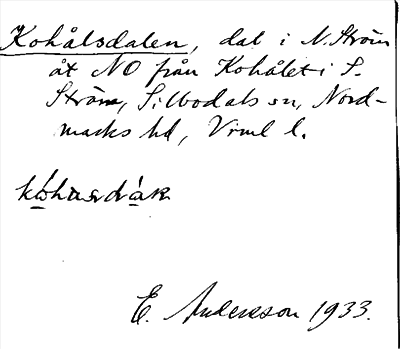 Kohålsdalen, dal i N. Ström
åt NO från Kohålet i S.
Ström, Silbodals sn, Nord-
marks hd, Vrml l.
E. Andersson 1933.